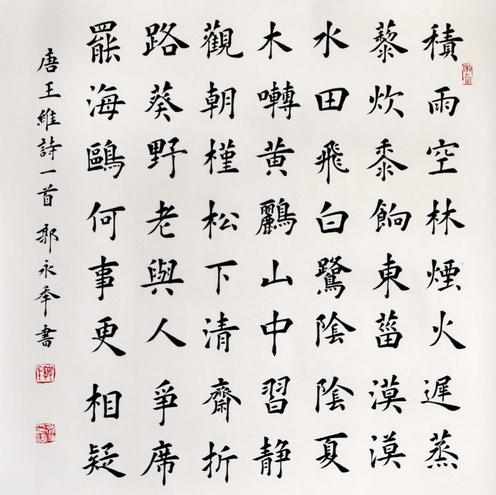 積雨空林煙火遲蒸
藜炊黍餉東菑漠漠
水田飛白鷺陰陰夏
木囀黄鸝山中習静
觀朝槿松下清齋折
路葵野老與人爭席
罷海鷗何事更相疑
唐王維詩一首 郭永奉書